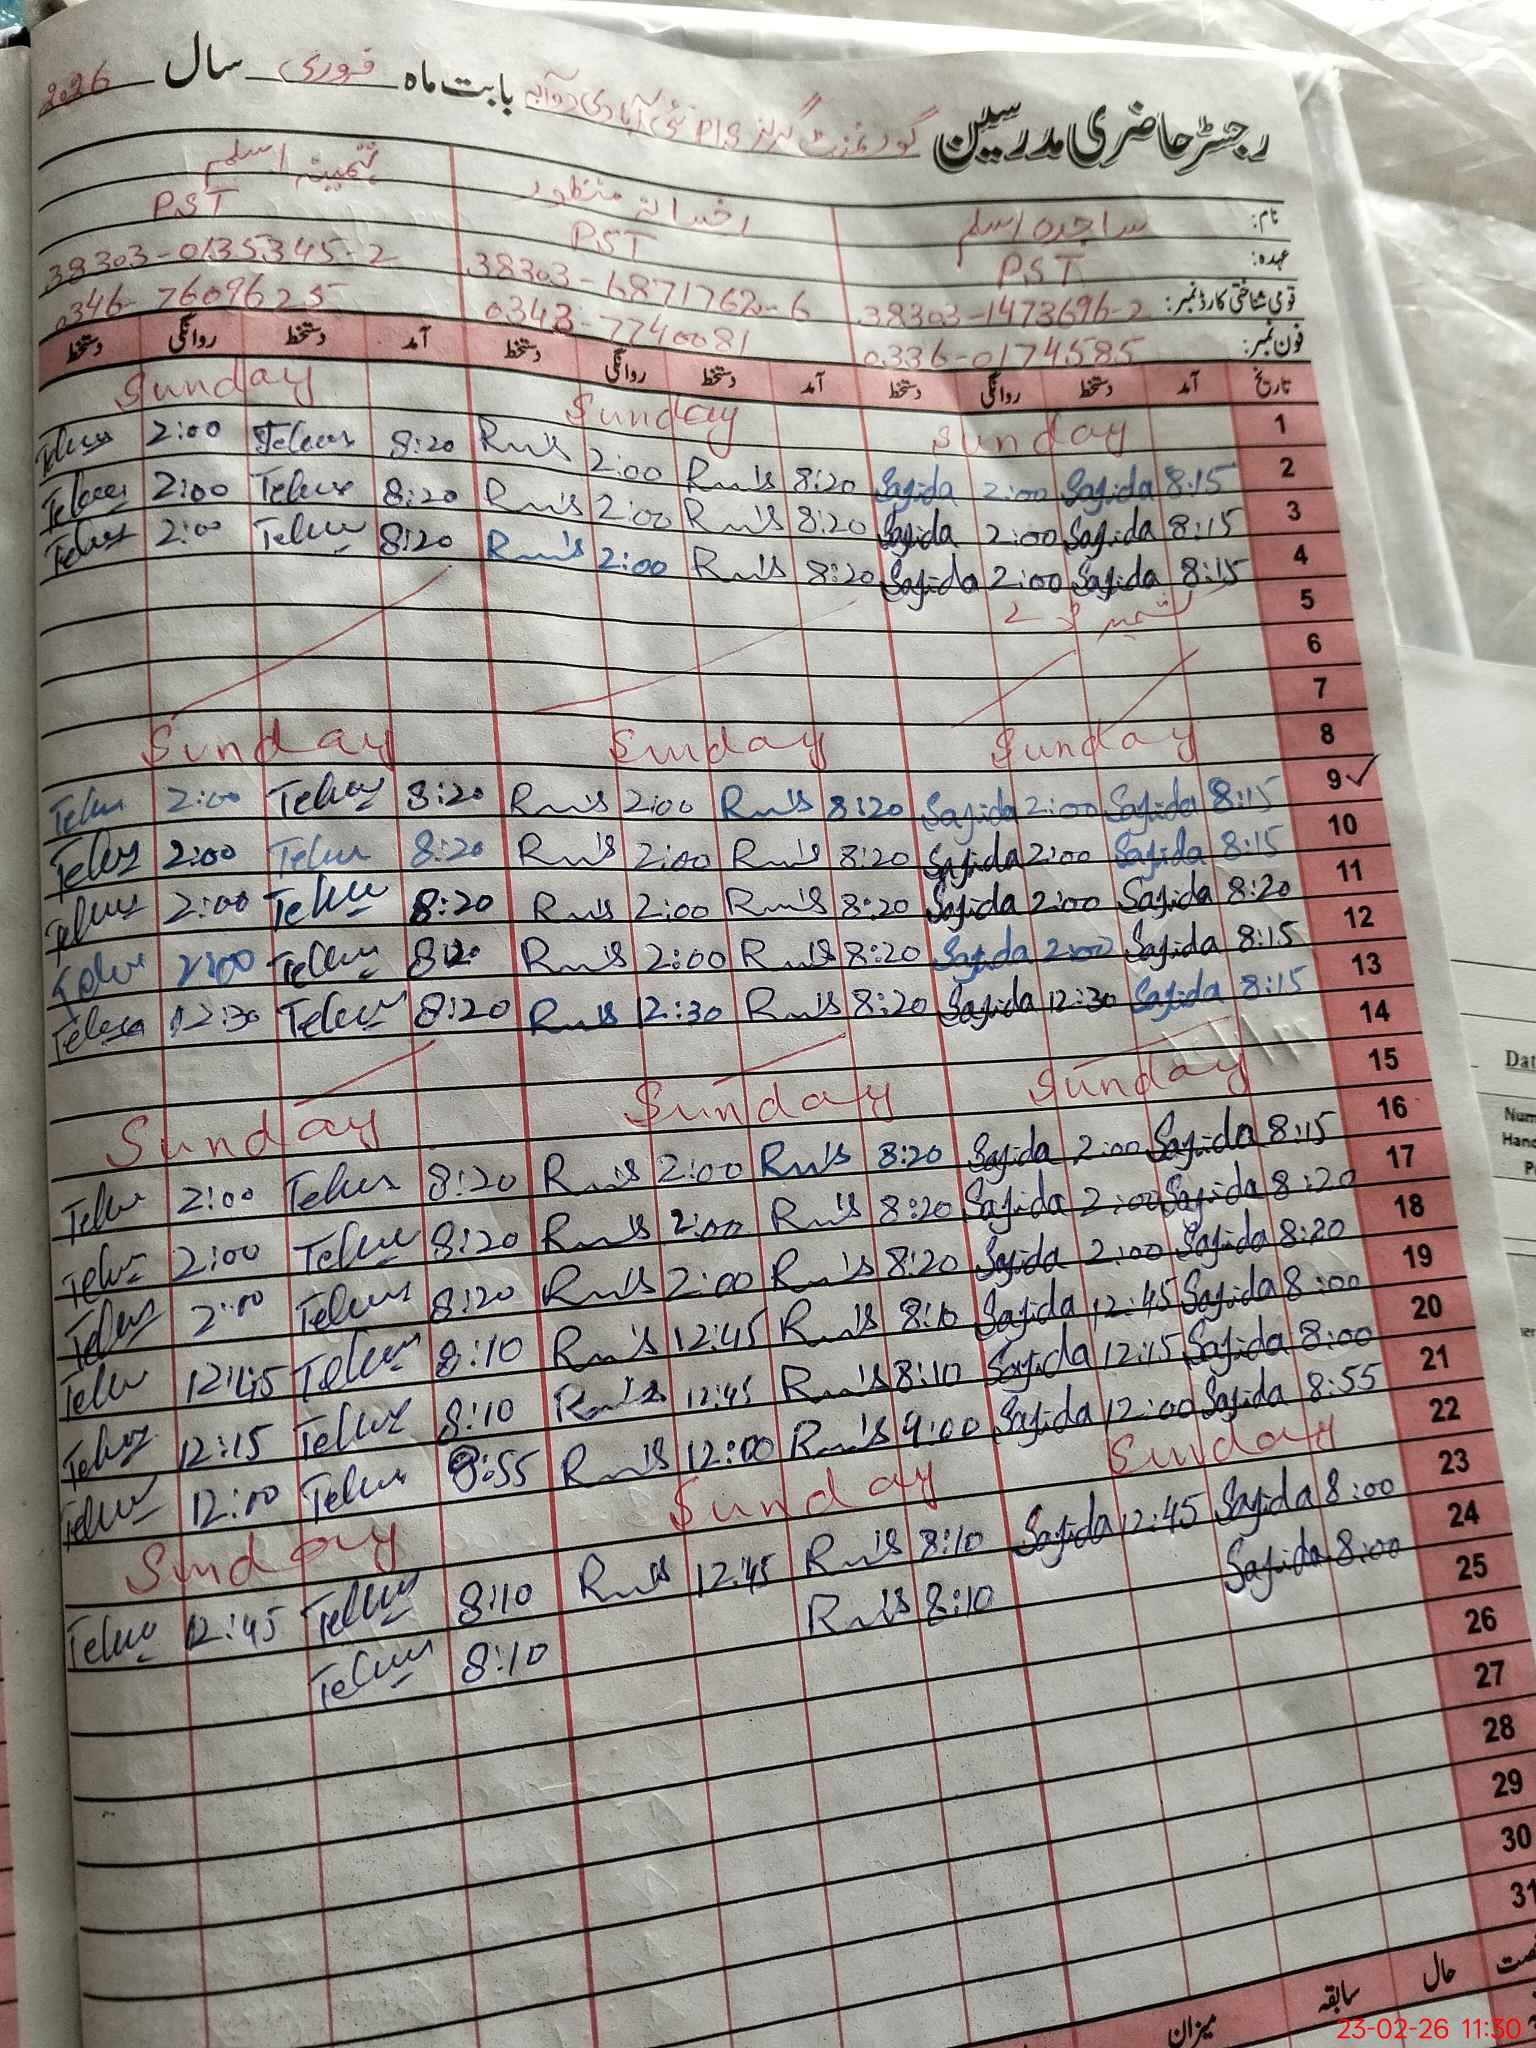 رجسٹر حاضری مدرسین گورنمنٹ گرلز P/S نئی آبادی دوآبہ بابت ماہ فروری سال 2026
نام: ساجدہ اسلم رخسانہ منظور ثمینہ اسلم
عہدہ: PST PST PST
قومی شناختی کارڈ نمبر: 38303-1473696-2 38303-6871762-6 38303-0135345-2
فون نمبر: 0336-0174585 0343-7740081 0346-7609625
تاریخ آمد دستخط روانگی دستخط آمد دستخط روانگی دستخط آمد دستخط روانگی دستخط
1 Sunday Sunday Sunday
2 8:15 Sajida 2:00 Sajida 8:20 2:00 8:20 2:00
3 8:15 Sajida 2:00 Sajida 8:20 2:00 8:20 2:00
4 8:15 Sajida 2:00 Sajida 8:20 2:00 8:20 2:00
5
6
7
8 Sunday Sunday Sunday
9 ✓ 8:15 Sajida 2:00 Sajida 8:20 2:00 8:20 2:00
10 8:15 Sajida 2:00 Sajida 8:20 2:00 8:20 2:00
11 8:20 Sajida 2:00 Sajida 8:20 2:00 8:20 2:00
12 8:15 Sajida 2:00 Sajida 8:20 2:00 8:20 2:00
13 8:15 Sajida 12:30 Sajida 8:20 12:30 8:20 12:30
14
15 Sunday Sunday Sunday
16 8:15 Sajida 2:00 Sajida 8:20 2:00 8:20 2:00
17 8:20 Sajida 2:00 Sajida 8:20 2:00 8:20 2:00
18 8:20 Sajida 2:00 Sajida 8:20 2:00 8:20 2:00
19 8:00 Sajida 12:45 Sajida 8:10 12:45 8:10 12:45
20 8:00 Sajida 12:15 Sajida 8:10 12:45 8:10 12:15
21 8:55 Sajida 12:00 Sajida 9:00 12:00 8:55 12:00
22 Sunday Sunday Sunday
23 8:00 Sajida 12:45 Sajida 8:10 12:45 8:10 12:45
24 8:00 Sajida 8:10 8:10
25
26
27
28
29
30
31
حال سابقہ میزان
23-02-26 11:30